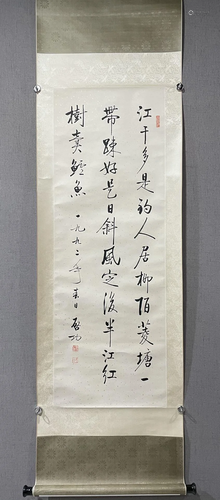 江干多是钓人居柳陌菱塘一
带疎好是日斜風定後半江红
樹卖鱸魚 一九九二年春日 启功